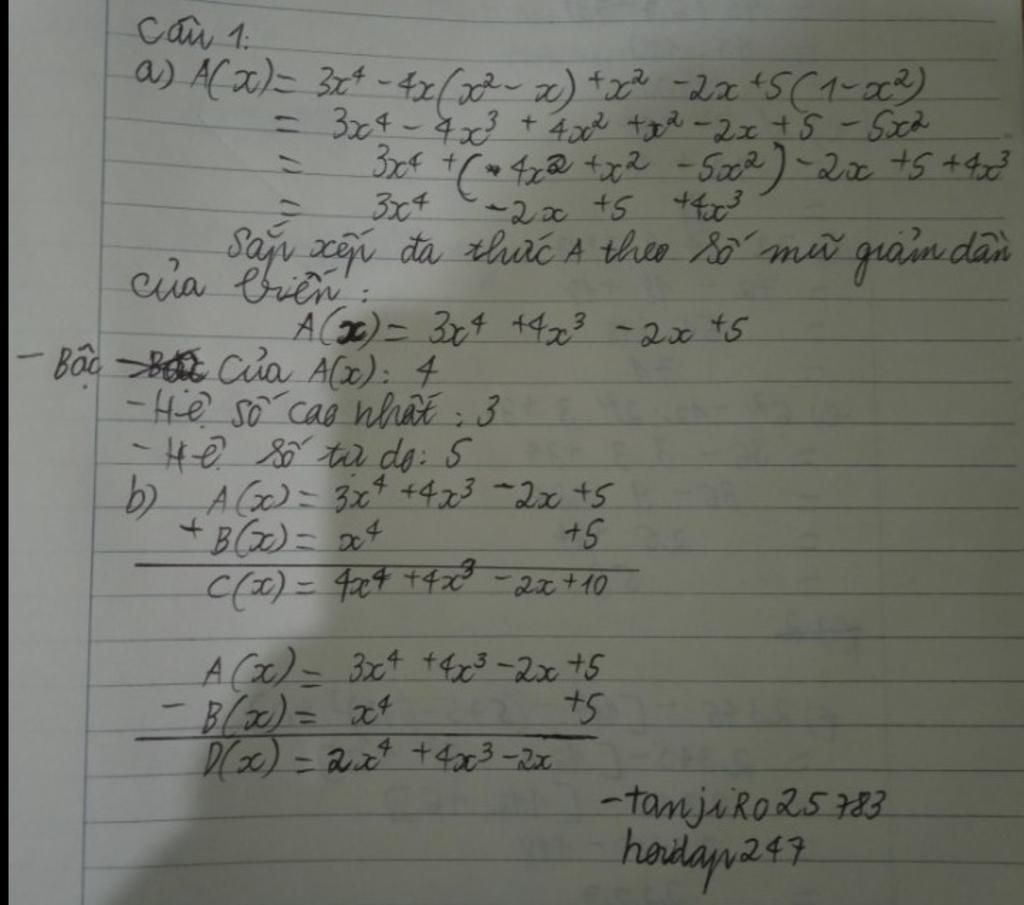 Câu 1:
a) A(x) = 3x⁴ - 4x(x² - x) + x² - 2x + 5(1 - x²)
= 3x⁴ - 4x³ + 4x² + x² - 2x + 5 - 5x²
= 3x⁴ + (4x² + x² - 5x²) - 2x + 5 + 4x³
= 3x⁴ - 2x + 5 + 4x³
Sắp xếp đa thức A theo số mũ giảm dần
của biến:
A(x) = 3x⁴ + 4x³ - 2x + 5
- Bậc của A(x): 4
- Hệ số cao nhất: 3
- Hệ số tự do: 5
b) A(x) = 3x⁴ + 4x³ - 2x + 5
+ B(x) = x⁴ + 5
C(x) = 4x⁴ + 4x³ - 2x + 10
A(x) = 3x⁴ + 4x³ - 2x + 5
- B(x) = x⁴ + 5
D(x) = 2x⁴ + 4x³ - 2x
- tanjiRo25783
hoidap247